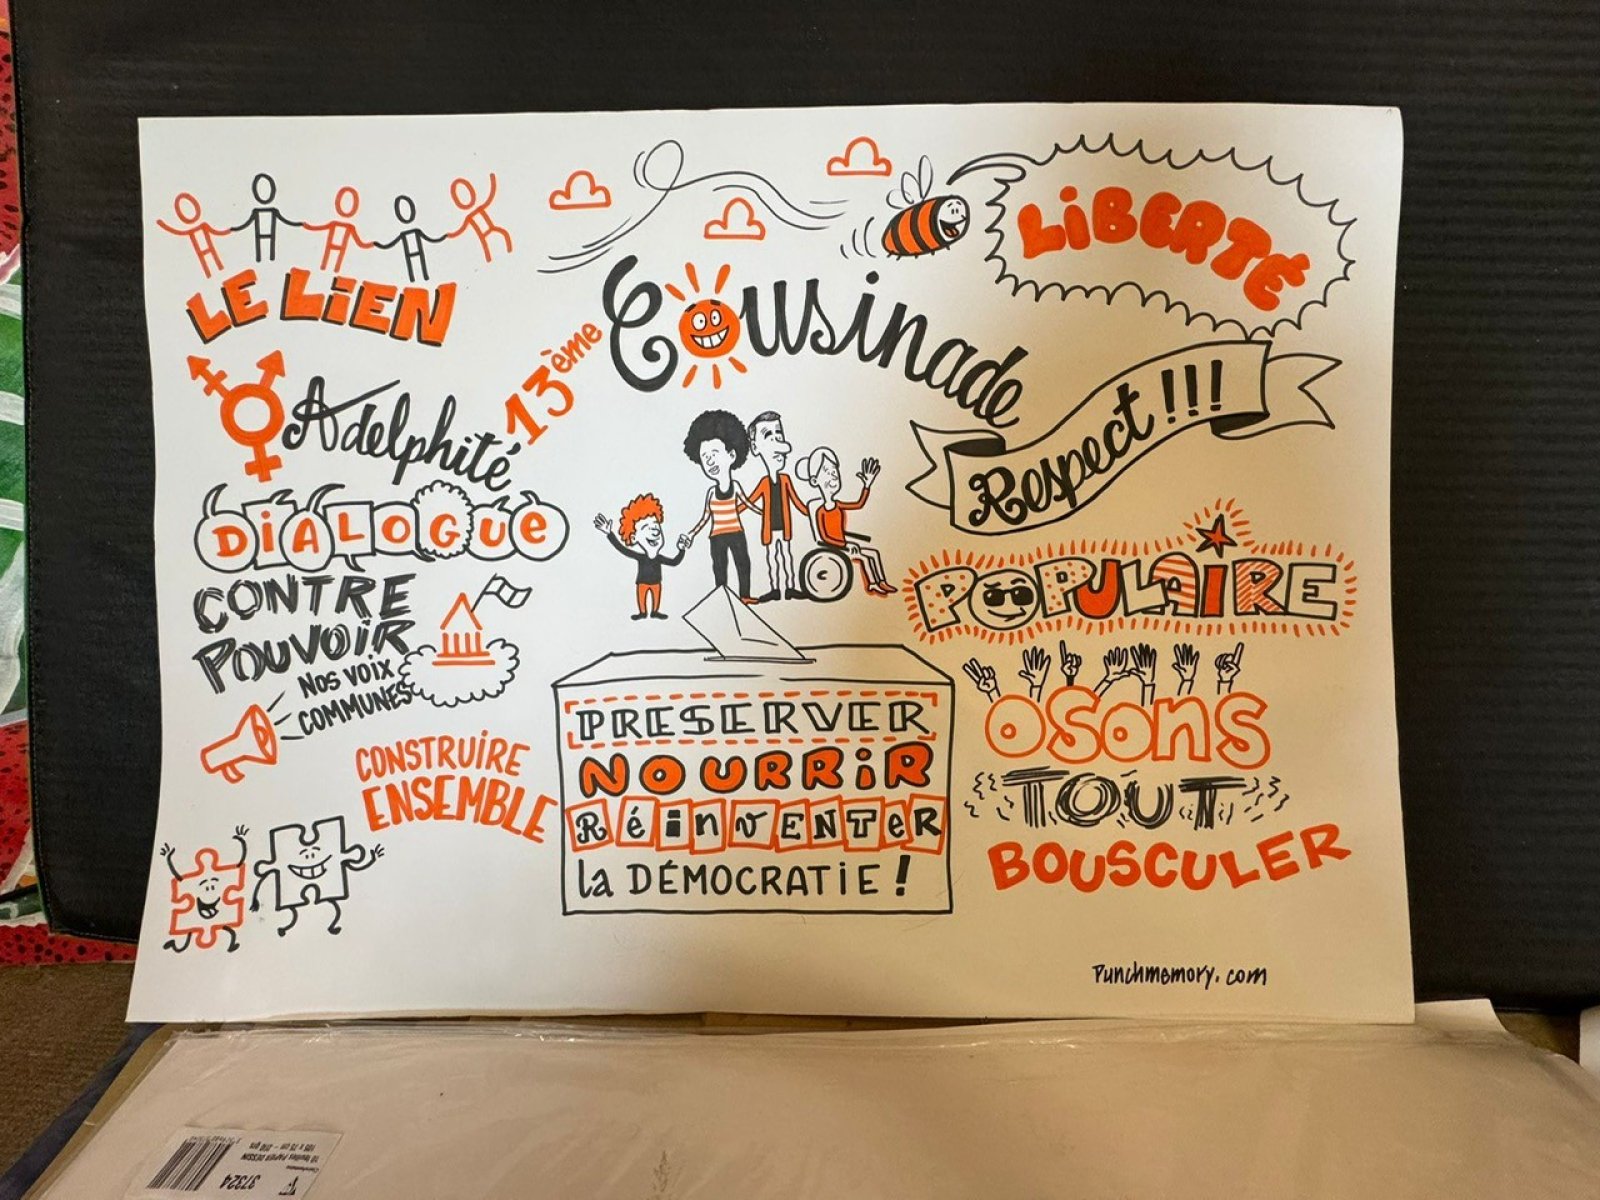 LE LiEN
13ème Cousinade
LiBERTÉ
Adelphité
Respect!!!
DiALOGUE
CONTRE
POUVOIR
NOS VOIX
COMMUNES
CONSTRUIRE
ENSEMBLE
POPULAIRE
OSONS
TOUT
BOUSCULER
PRESERVER
NOURRiR
RéinvENTeR
la DÉMOCRATIE!
Punchmemory.com
37324
10 feuilles PAPIER DESSIN